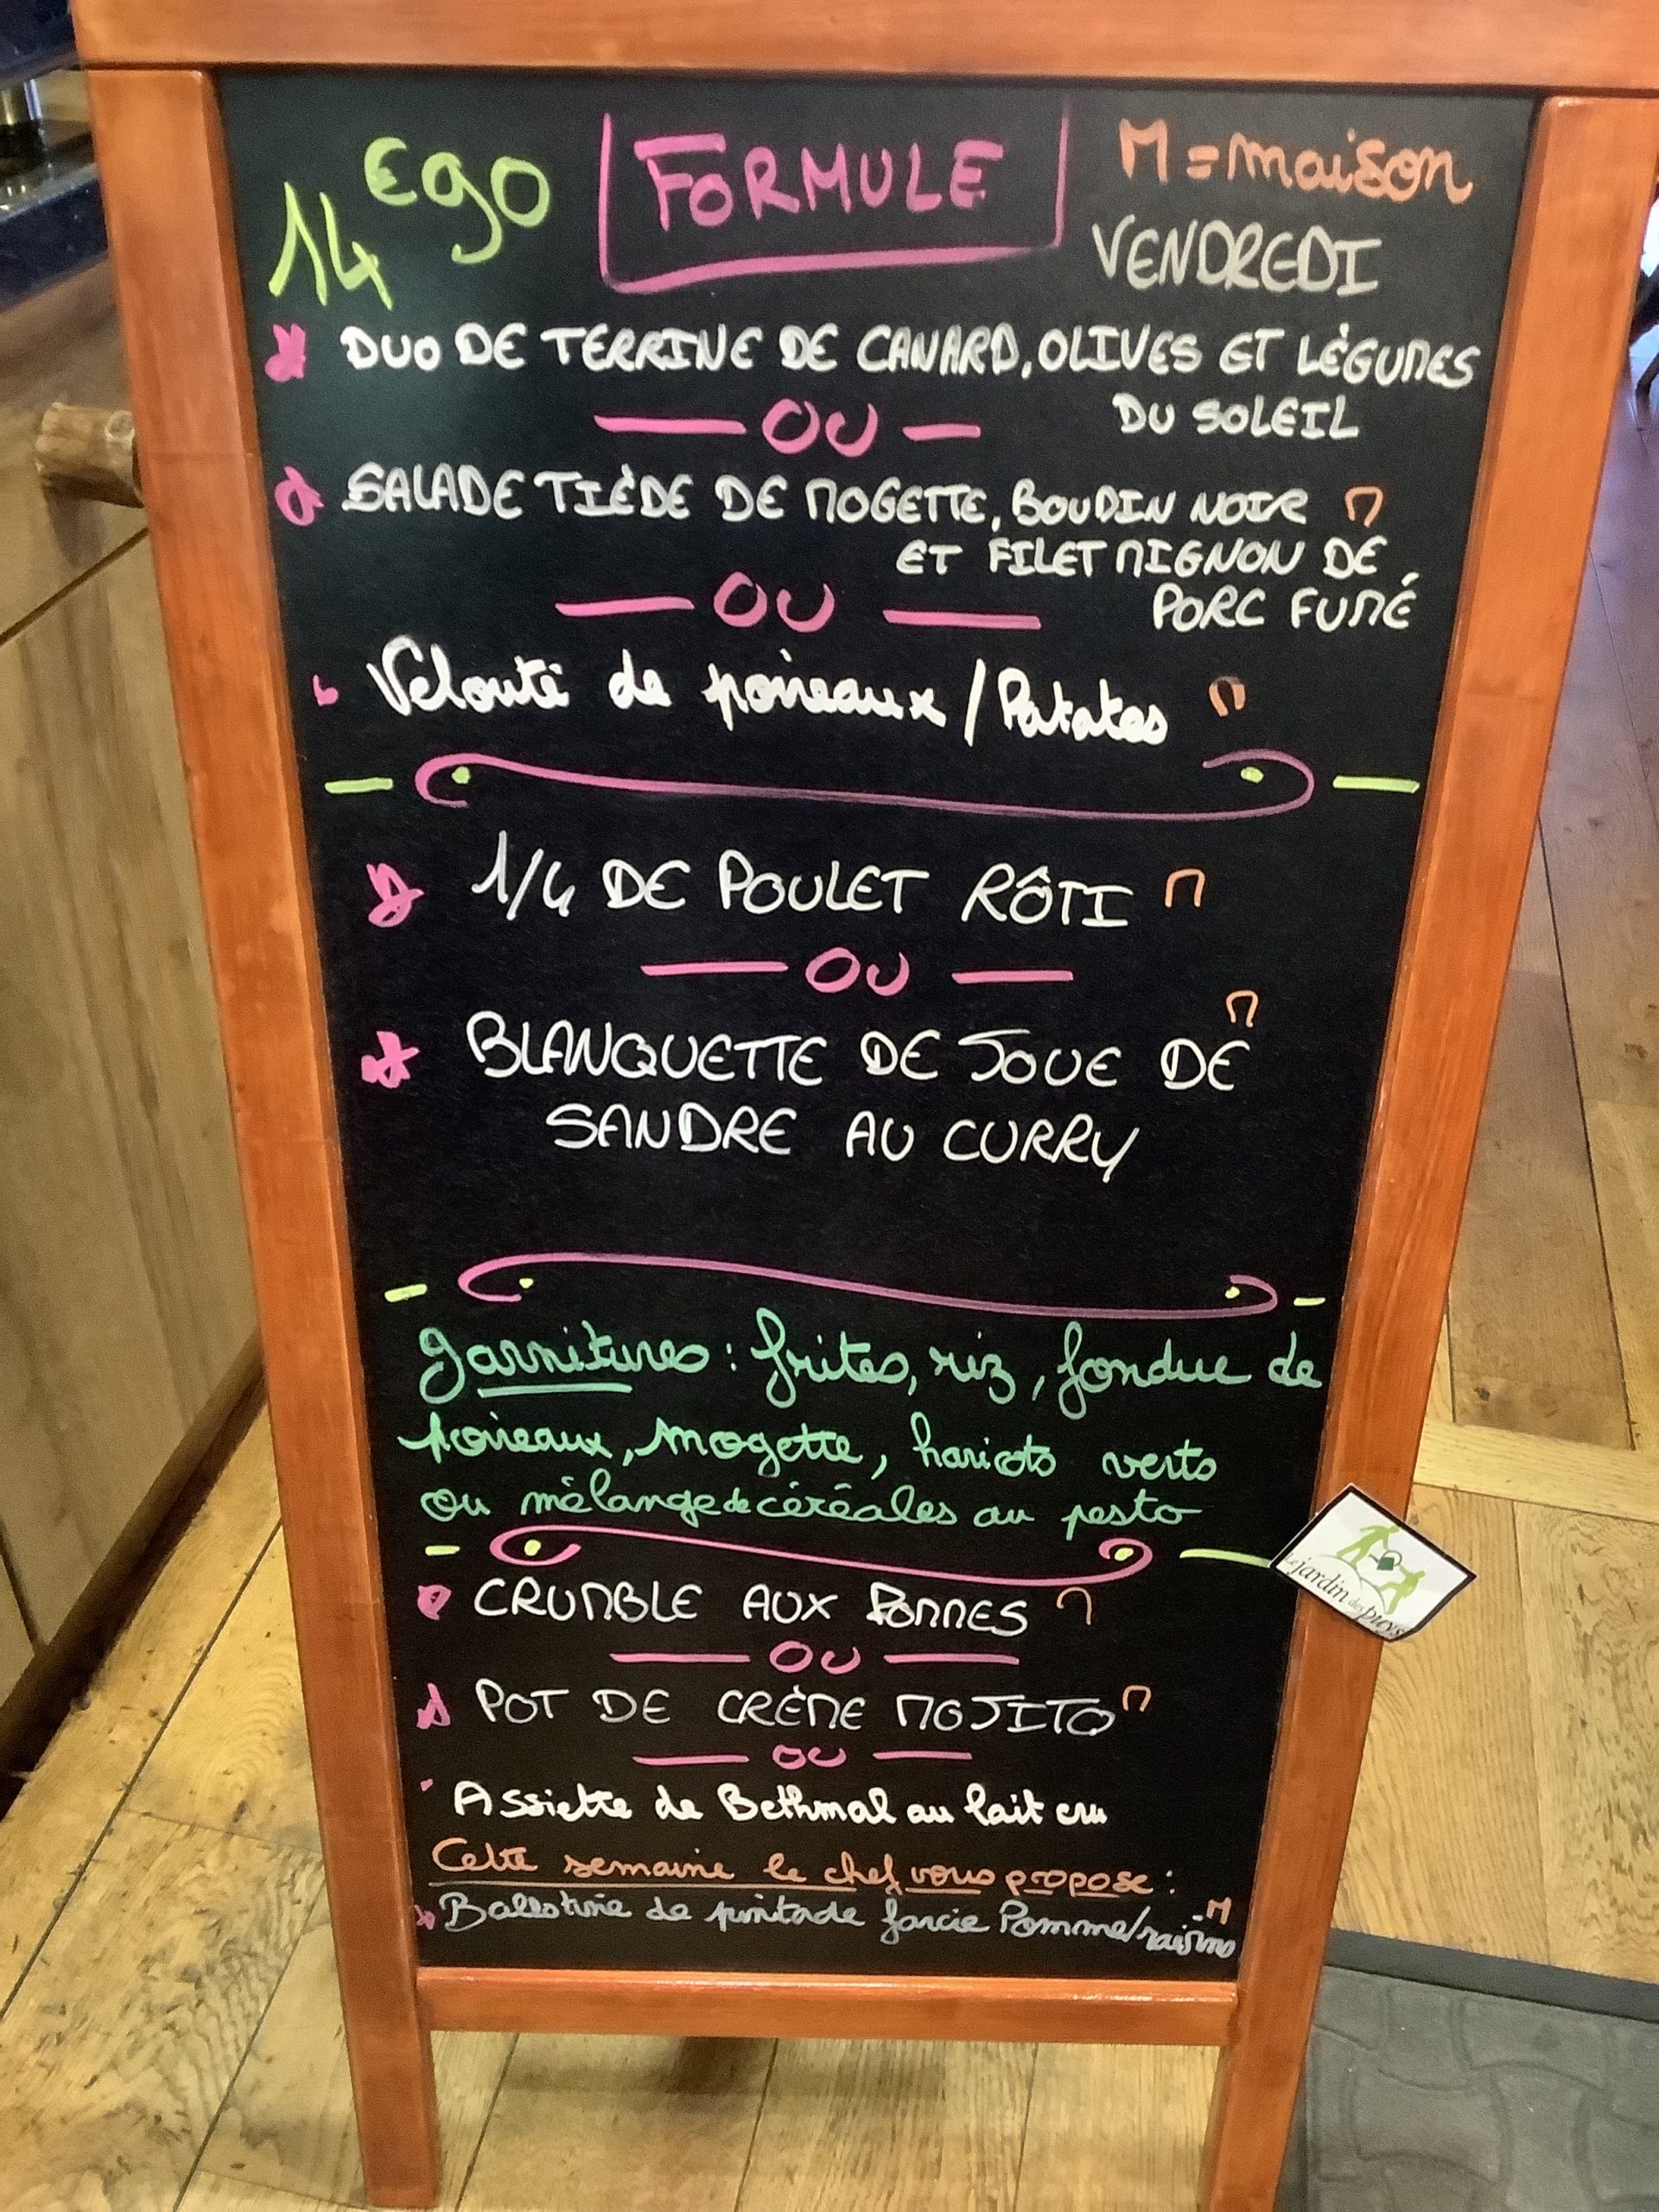 14€90 FORMULE M = maison
VENDREDI
DUO DE TERRINE DE CANARD, OLIVES ET LÉGUMES
DU SOLEIL
OU
SALADE TIÈDE DE MOGETTE, BOUDIN NOIR M
ET FILET MIGNON DE
PORC FUMÉ
OU
Velouté de poireaux / Patates M
1/4 DE POULET RÔTI M
OU
BLANQUETTE DE JOUE DE M
SANDRE AU CURRY
garnitures : frites, riz, fondue de
poireaux, mogette, haricots verts
ou mélange de céréales au pesto
CRUMBLE AUX POMMES M
OU
POT DE CRÈME MOJITO M
OU
Assiette de Bethmal au lait cru
Cette semaine le chef vous propose :
Ballotine de pintade farcie Pomme/raisins M
Le jardin des puys